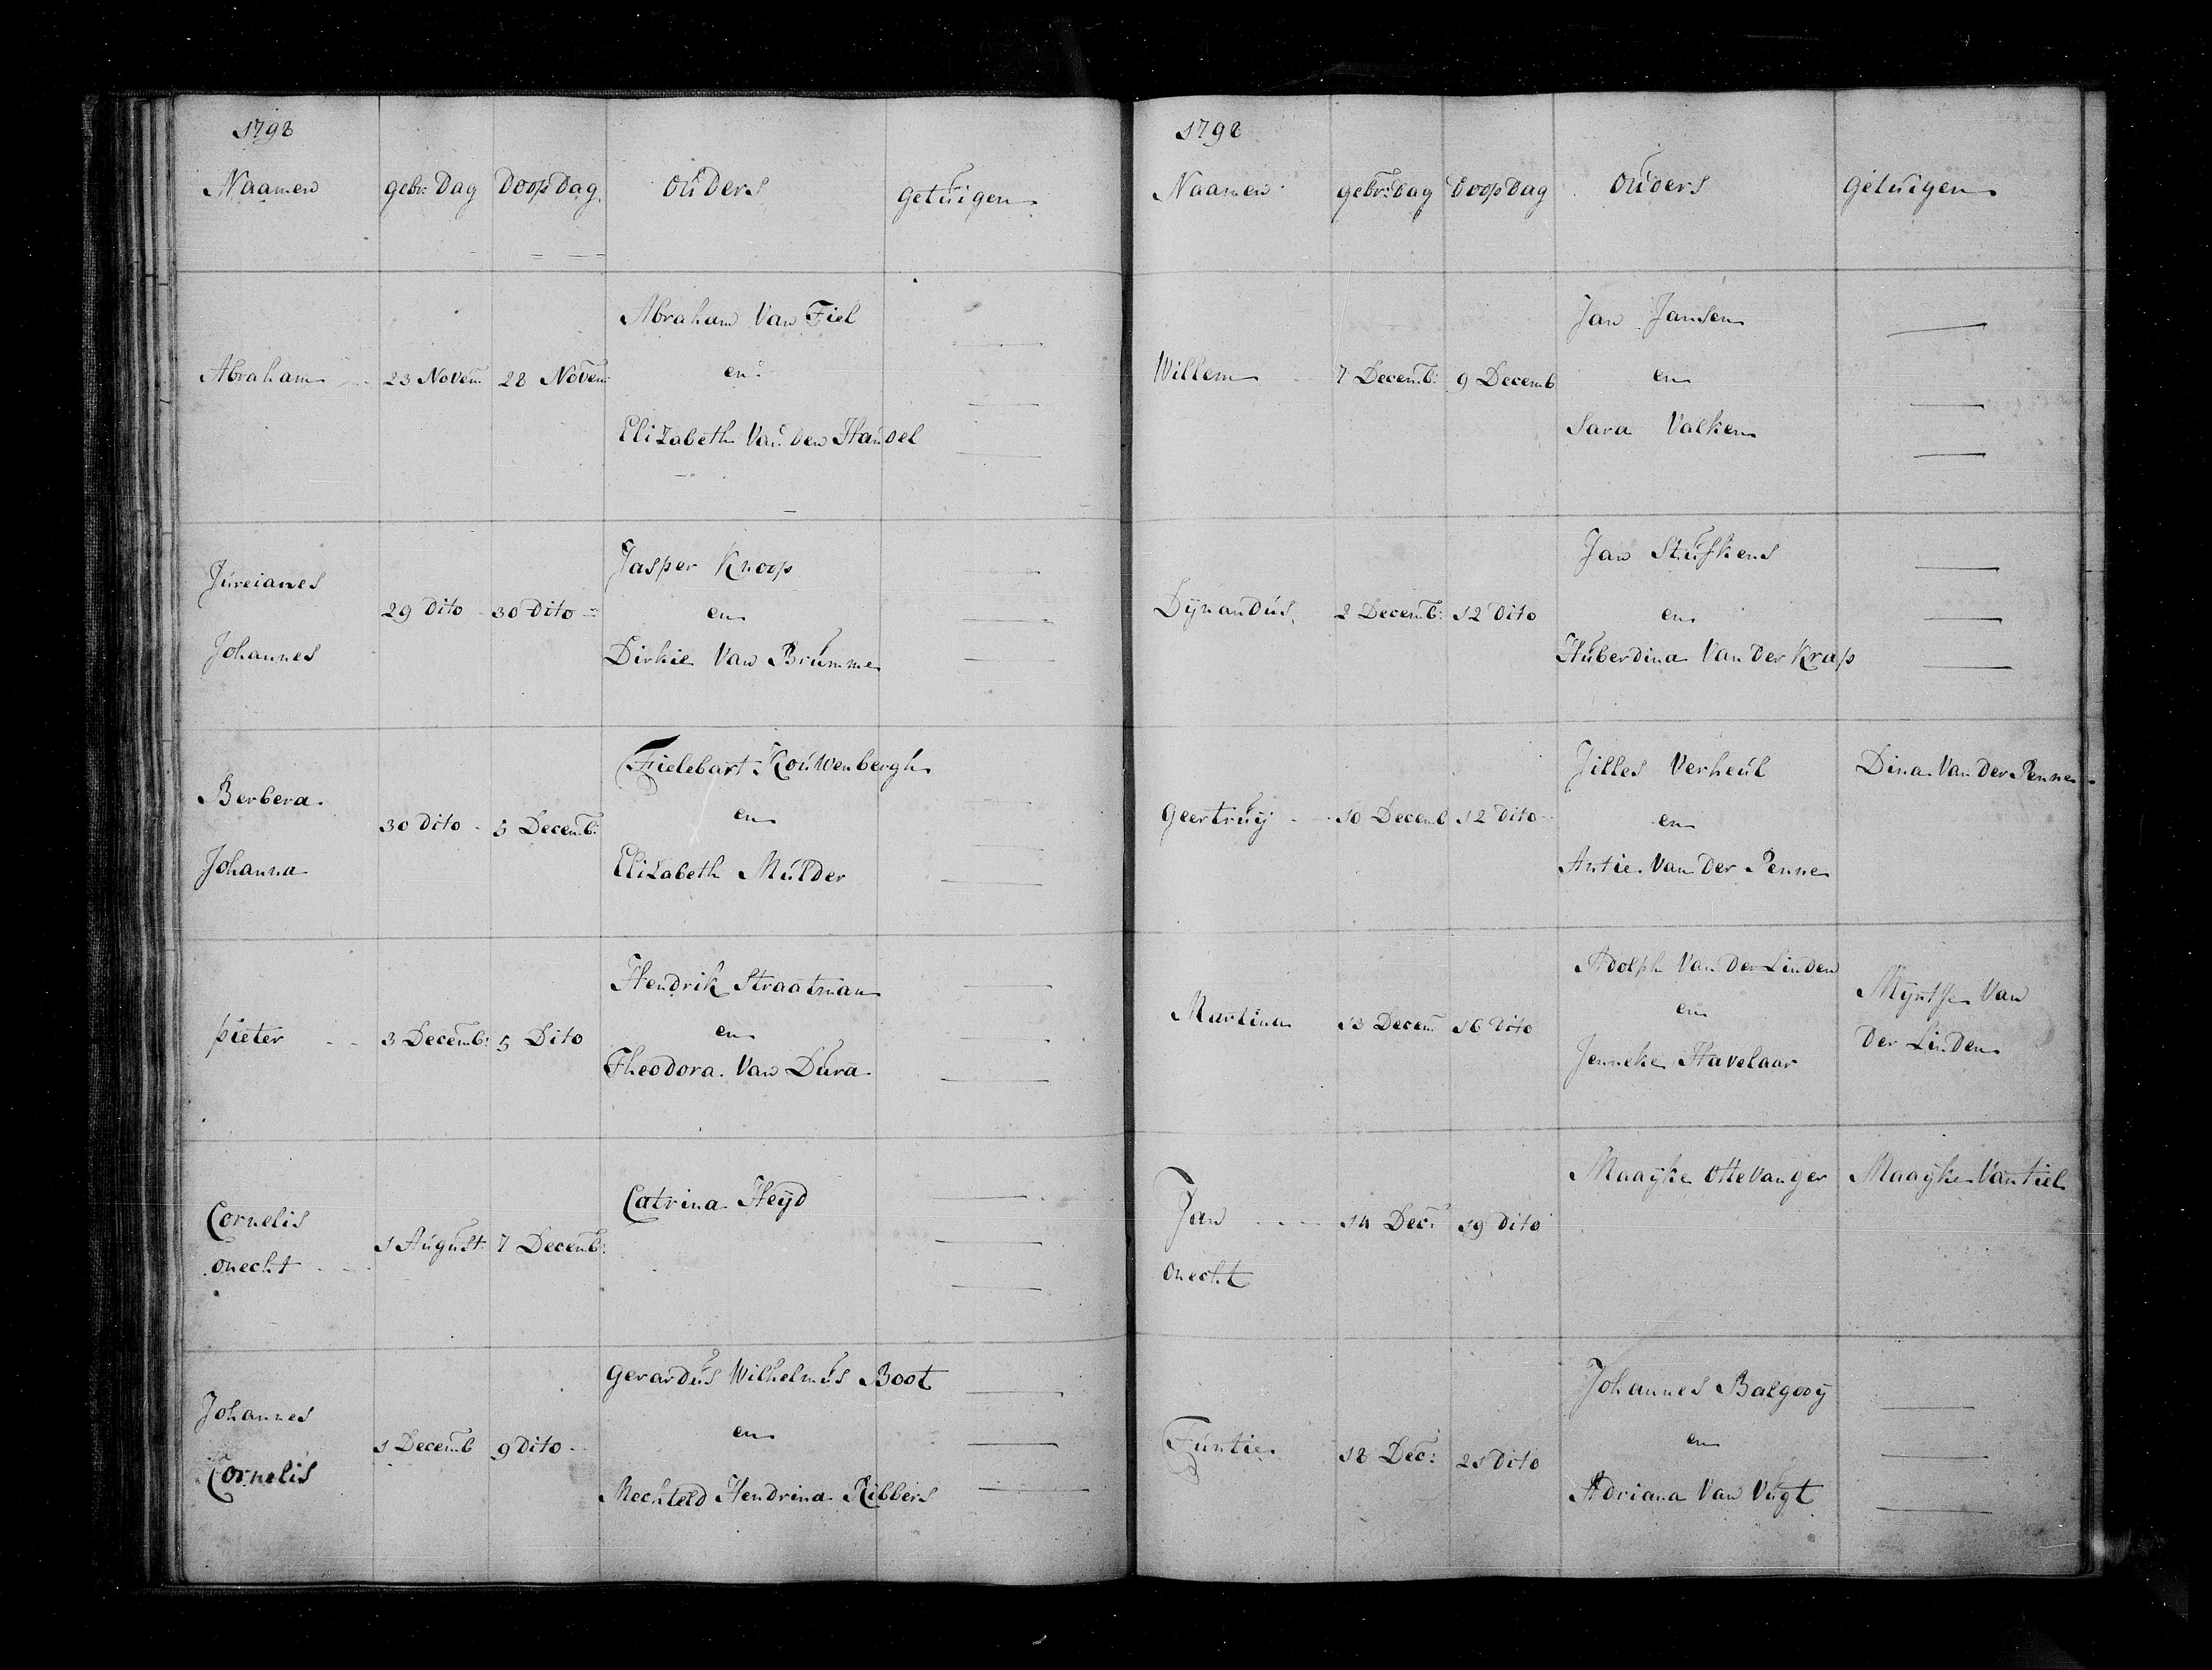 1798
Naamen gebr: Dag Doop Dag ouders getuigen
Abraham 23 Novem: 28 Novem:
Abraham Van Tiel
en
Elizabeth Van den Handel
Jureianes
Johannes
29 Dito 30 Dito
Jasper Knoop
en
Dirkie Van Brumme
Berbera
Johanna
30 Dito 5 Decemb:
Tielebart Kouwenbergh
en
Elizabeth Mulder
pieter 3 Decemb: 5 Dito
Hendrik Straatman
en
Theodora Van Dura
Cornelis
onecht
1 August: 7 Decemb:
Catrina Heyd
Johannes
Cornelis
1 Decemb 9 Dito
Gerardus Wilhelmus Boot
en
Mechteld Hendrina Ribbers
1798
Naamen gebr: Dag Doop Dag ouders getuigen
Willem 7 Decemb: 9 Decemb
Jan Jansen
en
Sara Valken
Dÿnandus 8 Decemb: 12 Dito
Jan Stufkens
en
Huberdina Van der Krap
Geertruÿ 10 Decemb 12 Dito
Jilles Verheul
en
Antie Van der Penne
Dina Van der Penne
Martina 13 Decem 16 Dito
Adolph Van der Linden
en
Jenneke Havelaar
Mÿntje Van
der Linden
Jan
onecht
14 Dec: 19 Dito
Maaÿke Ottevanger
Maaÿke Van tiel
Tuntie 18 Dec: 21 Dito
Johannes Balgooÿ
en
Adriana Van Vugt